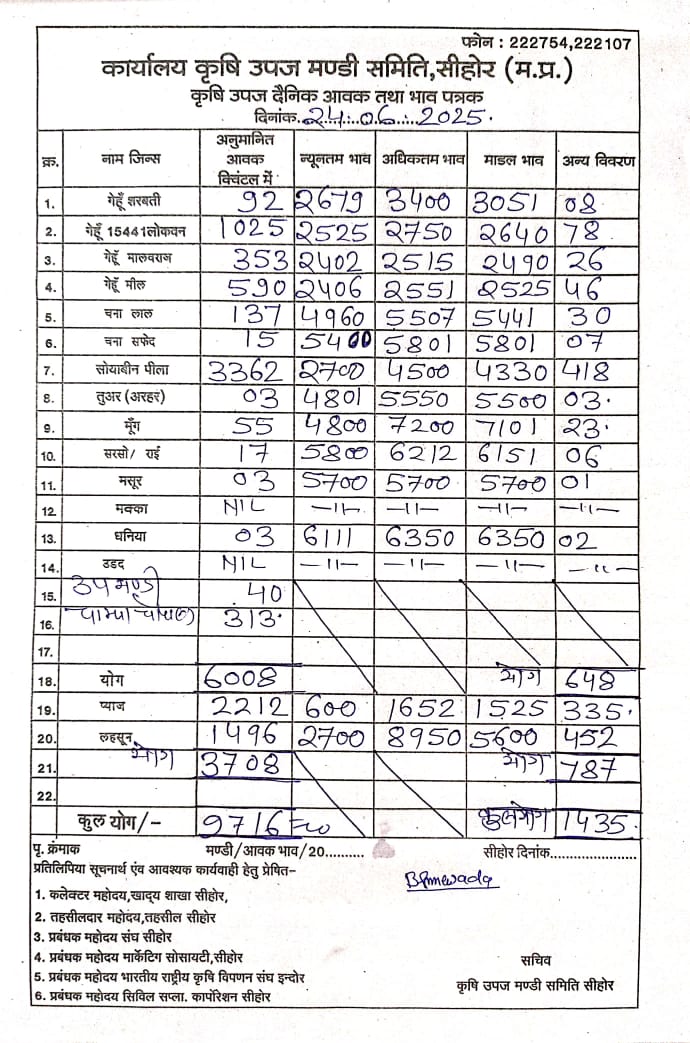 फोन : 222754,222107
कार्यालय कृषि उपज मण्डी समिति,सीहोर (म.प्र.)
कृषि उपज दैनिक आवक तथा भाव पत्रक
दिनांक. 24.06.2025.
क्र. नाम जिन्स अनुमानित आवक क्विंटल में न्यूनतम भाव अधिकतम भाव माडल भाव अन्य विवरण
1. गेहूँ शरबती 92 2679 3400 3051 08
2. गेहूँ 15441लोकवन 1025 2525 2750 2640 78
3. गेहूँ मालवराज 353 2402 2515 2490 26
4. गेहूँ मील 590 2406 2551 2525 46
5. चना लाल 137 4960 5507 5441 30
6. चना सफेद 15 5400 5801 5801 07
7. सोयाबीन पीला 3362 2700 4500 4330 418
8. तुअर (अरहर) 03 4801 5550 5500 03.
9. मूँग 55 4800 7200 7101 23.
10. सरसो/ राई 17 5800 6212 6151 06
11. मसूर 03 5700 5700 5700 01
12. मक्का NIL —11— —11— —11— —11—
13. धनिया 03 6111 6350 6350 02
14. उडद NIL —11— —11— —11— —11—
15. उपमण्डी 40
16. 313.
17.
18. योग 6008 योग 648
19. प्याज 2212 600 1652 1525 335.
20. लहसून 1496 2700 8950 5600 452
21. योग 3708 योग 787
22.
कुल योग/- 9716=00 कुलयोग 1435.
पृ. क्रंमाक मण्डी/आवक भाव/20.......... सीहोर दिनांक......................
प्रतिलिपिया सूचनार्थ एंव आवश्यक कार्यवाही हेतु प्रेषित–
BPmewada
1. कलेक्टर महोदय,खाद्य शाखा सीहोर,
2. तहसीलदार महोदय,तहसील सीहोर
3. प्रबंधक महोदय संघ सीहोर
4. प्रबंधक महोदय मार्केटिग सोसायटी,सीहोर
सचिव
5. प्रबंधक महोदय भारतीय राष्ट्रीय कृषि विपणन संघ इन्दोर
कृषि उपज मण्डी समिति सीहोर
6. प्रबंधक महोदय सिविल सप्ला. कार्पोरेशन सीहोर